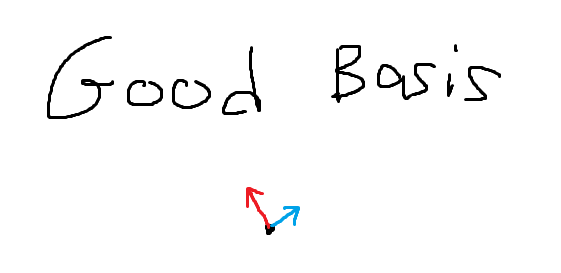 Good Basis